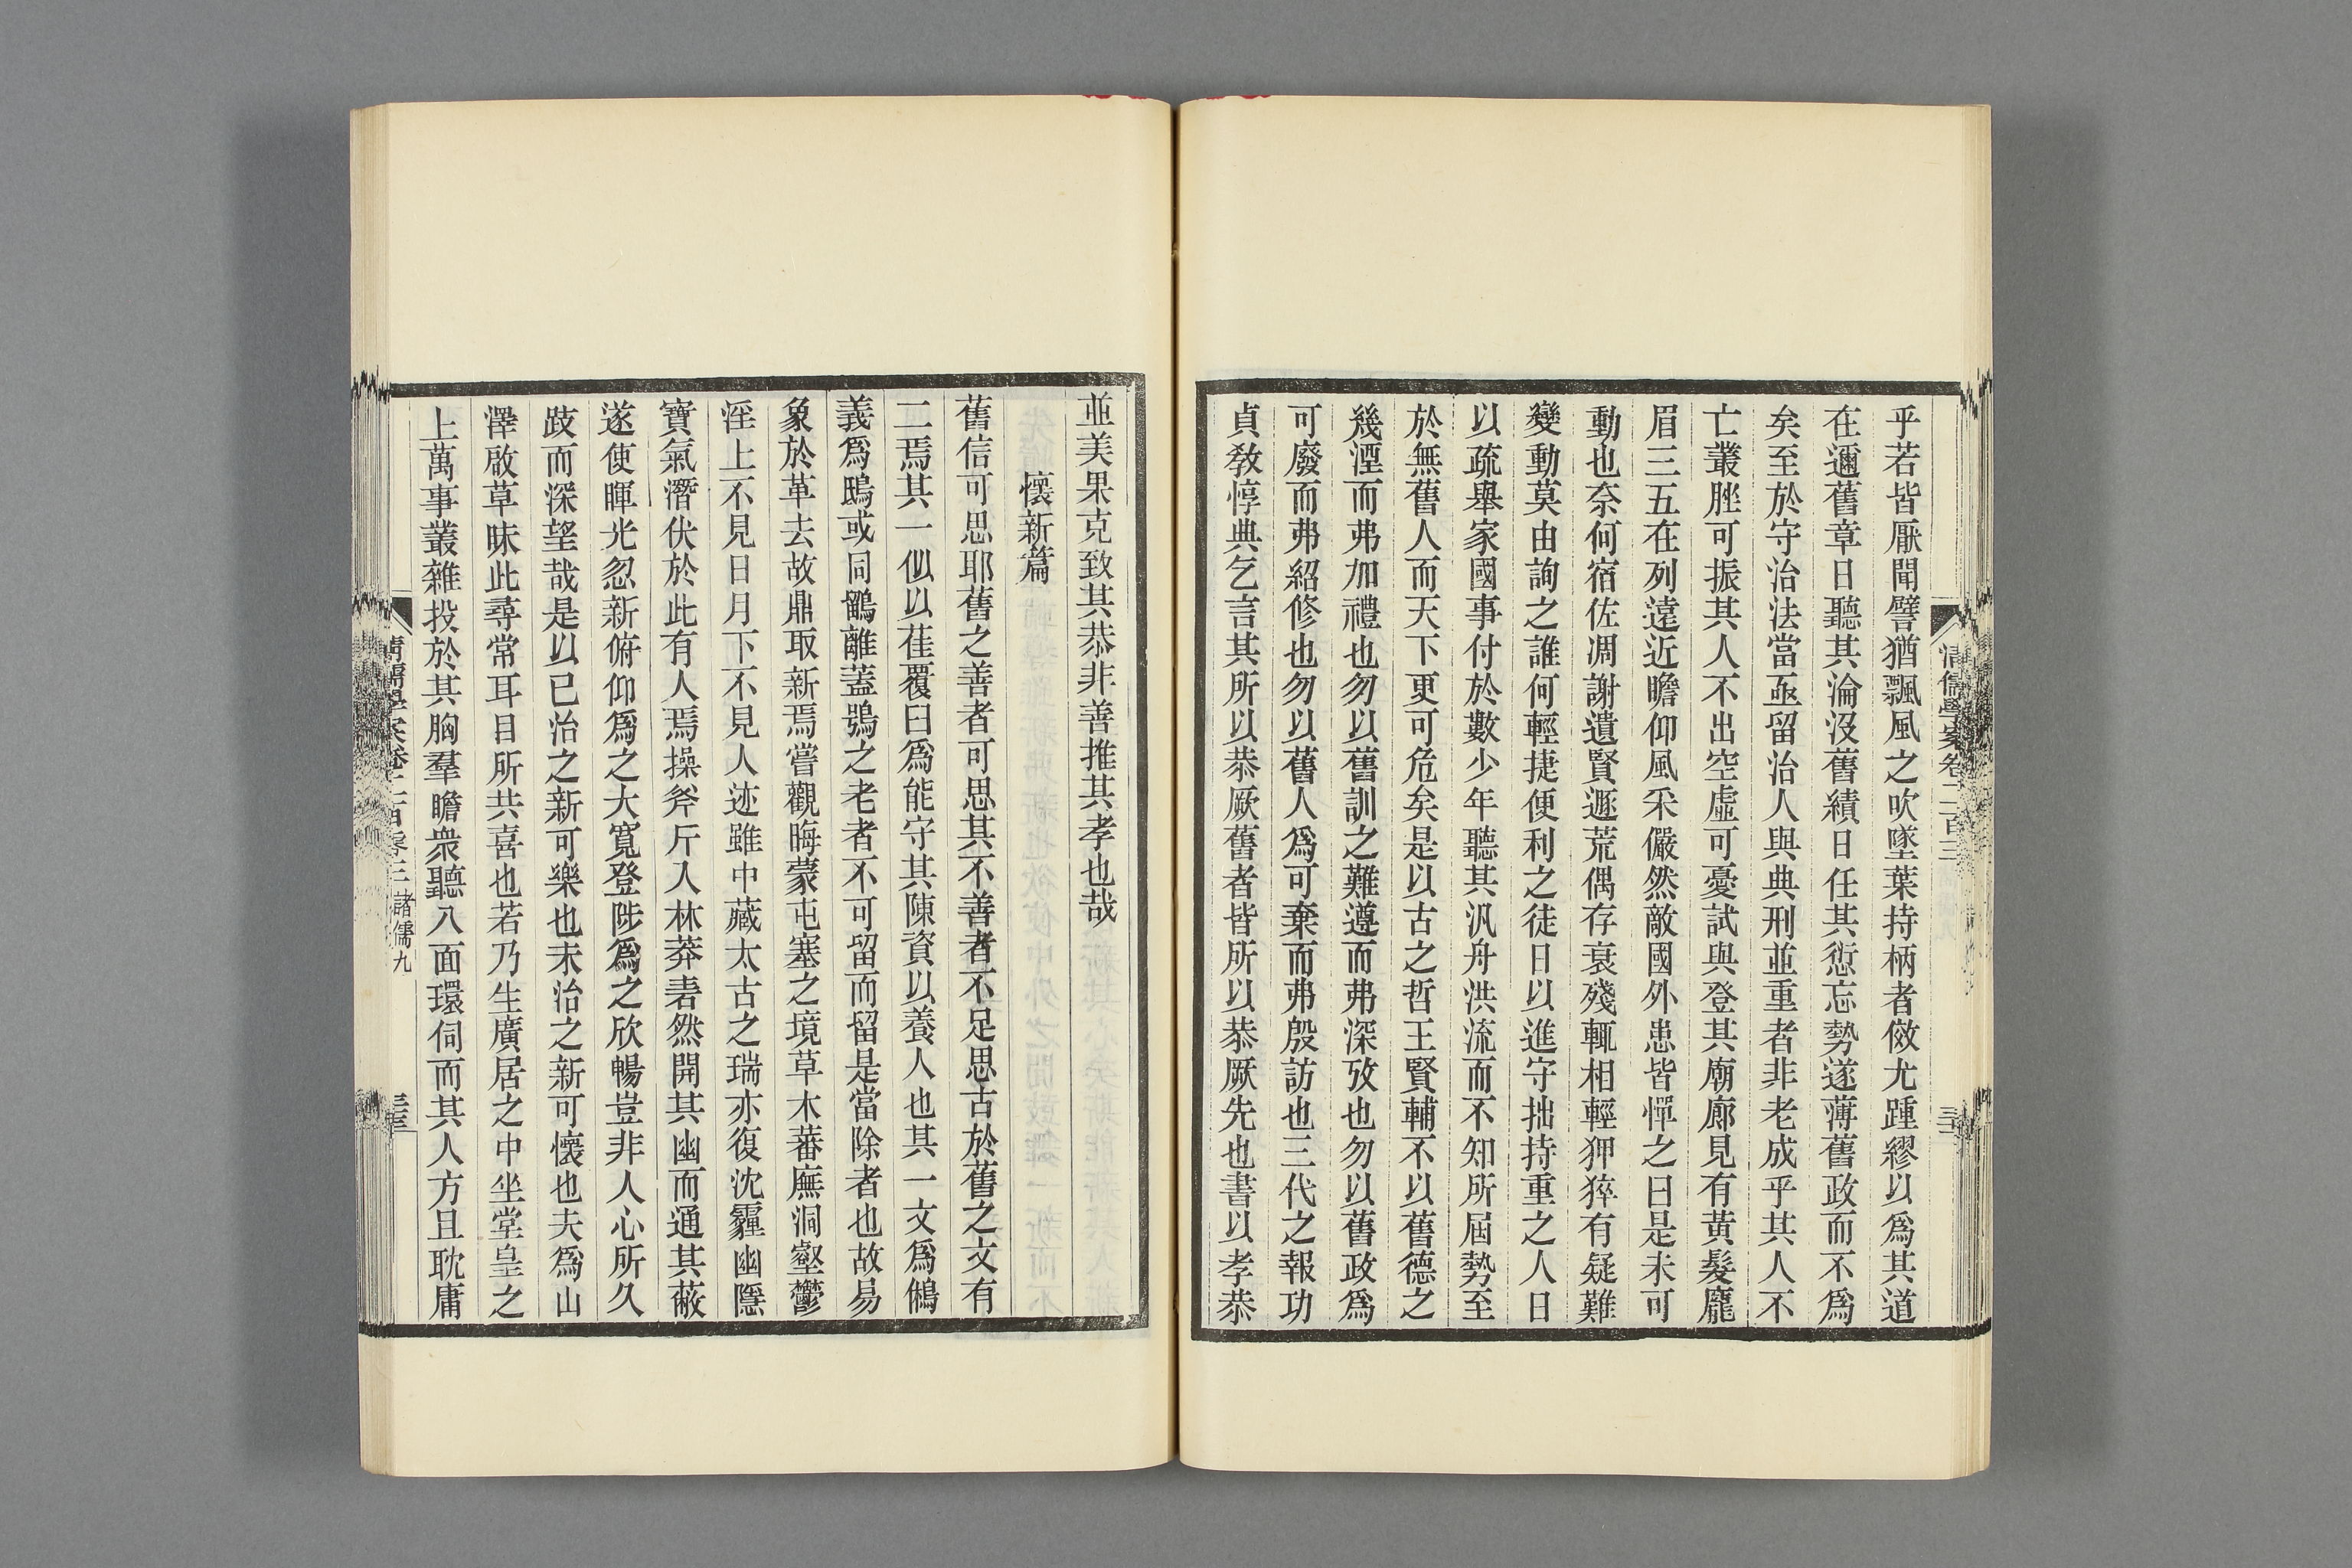 乎若皆厭聞譬猶飄風之吹墜葉持柄者傚尤踵繆以爲其道
在邇舊章日聽其淪沒舊績日任其愆忘勢遂薄舊政而不爲
矣至於守治法當亟留治人與典刑並重者非老成乎其人不
亡叢脞可振其人不出空虛可憂試與登其廟廊見有黃髮龐
眉三五在列遠近瞻仰風采儼然敵國外患皆憚之曰是未可
動也奈何宿佐凋謝遺賢遯荒偶存衰殘輒相輕狎猝有疑難
變動莫由詢之誰何輕捷便利之徒日以進守拙持重之人日
以疏舉家國事付於數少年聽其汎舟洪流而不知所屆勢至
於無舊人而天下更可危矣是以古之哲王賢輔不以舊德之
幾湮而弗加禮也勿以舊訓之難遵而弗深攷也勿以舊政爲
可廢而弗紹修也勿以舊人爲可棄而弗殷訪也三代之報功
貞敎惇典乞言其所以恭厥舊者皆所以恭厥先也書以孝恭
清儒學案卷二百三
三十二
並美果克致其恭非善推其孝也哉
懷新篇
舊信可思耶舊之善者可思其不善者不足思古於舊之文有
二焉其一佀以萑覆臼爲能守其陳資以養人也其一文爲鵂
義爲鴟或同鶹離蓋鴞之老者不可留而留是當除者也故易
象於革去故鼎取新焉嘗觀晦蒙屯塞之境草木蕃廡洞壑鬱
淫上不見日月下不見人迹雖中藏太古之瑞亦復沈霾幽隱
寶氣潛伏於此有人焉操斧斤入林莽砉然開其幽而通其蔽
遂使暉光忽新俯仰爲之大寬登陟爲之欣暢豈非人心所久
跂而深望哉是以已治之新可樂也未治之新可懷也夫爲山
澤啟草昧此尋常耳目所共喜也若乃生廣居之中坐堂皇之
上萬事叢雜投於其胸羣瞻衆聽八面環伺而其人方且耽庸
清儒學案卷二百零三 諸儒九
三十三